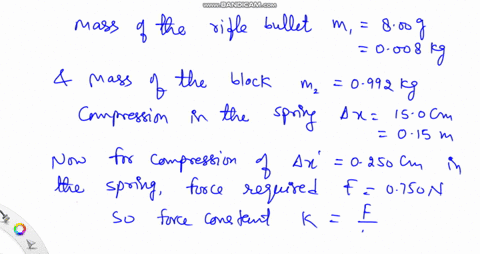 WWW.BANDICAM.COM
Mass of the rifle bullet m₁ = 8.00 g
= 0.008 kg
& Mass of the block m₂ = 0.992 kg
Compression in the spring Δx = 15.0 Cm
= 0.15 m
Now for compression of Δx' = 0.250 Cm in
the spring, force required F = 0.750 N
So force constant K = F/